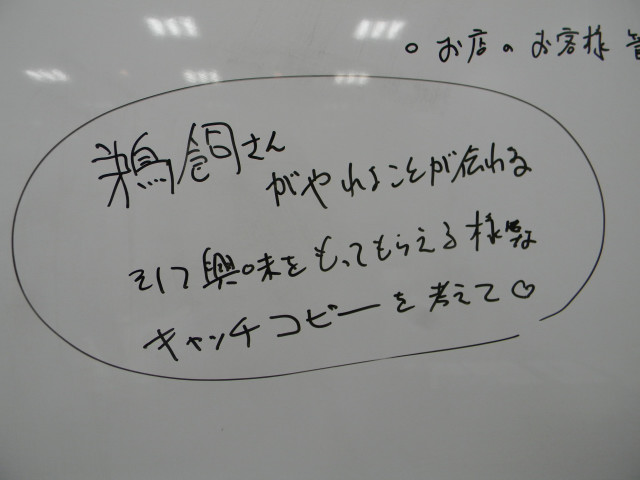 ○ お店のお客様
鵜飼さん
がやれることが伝わる
そして興味をもってもらえる様な
キャッチコピーを考えて♡